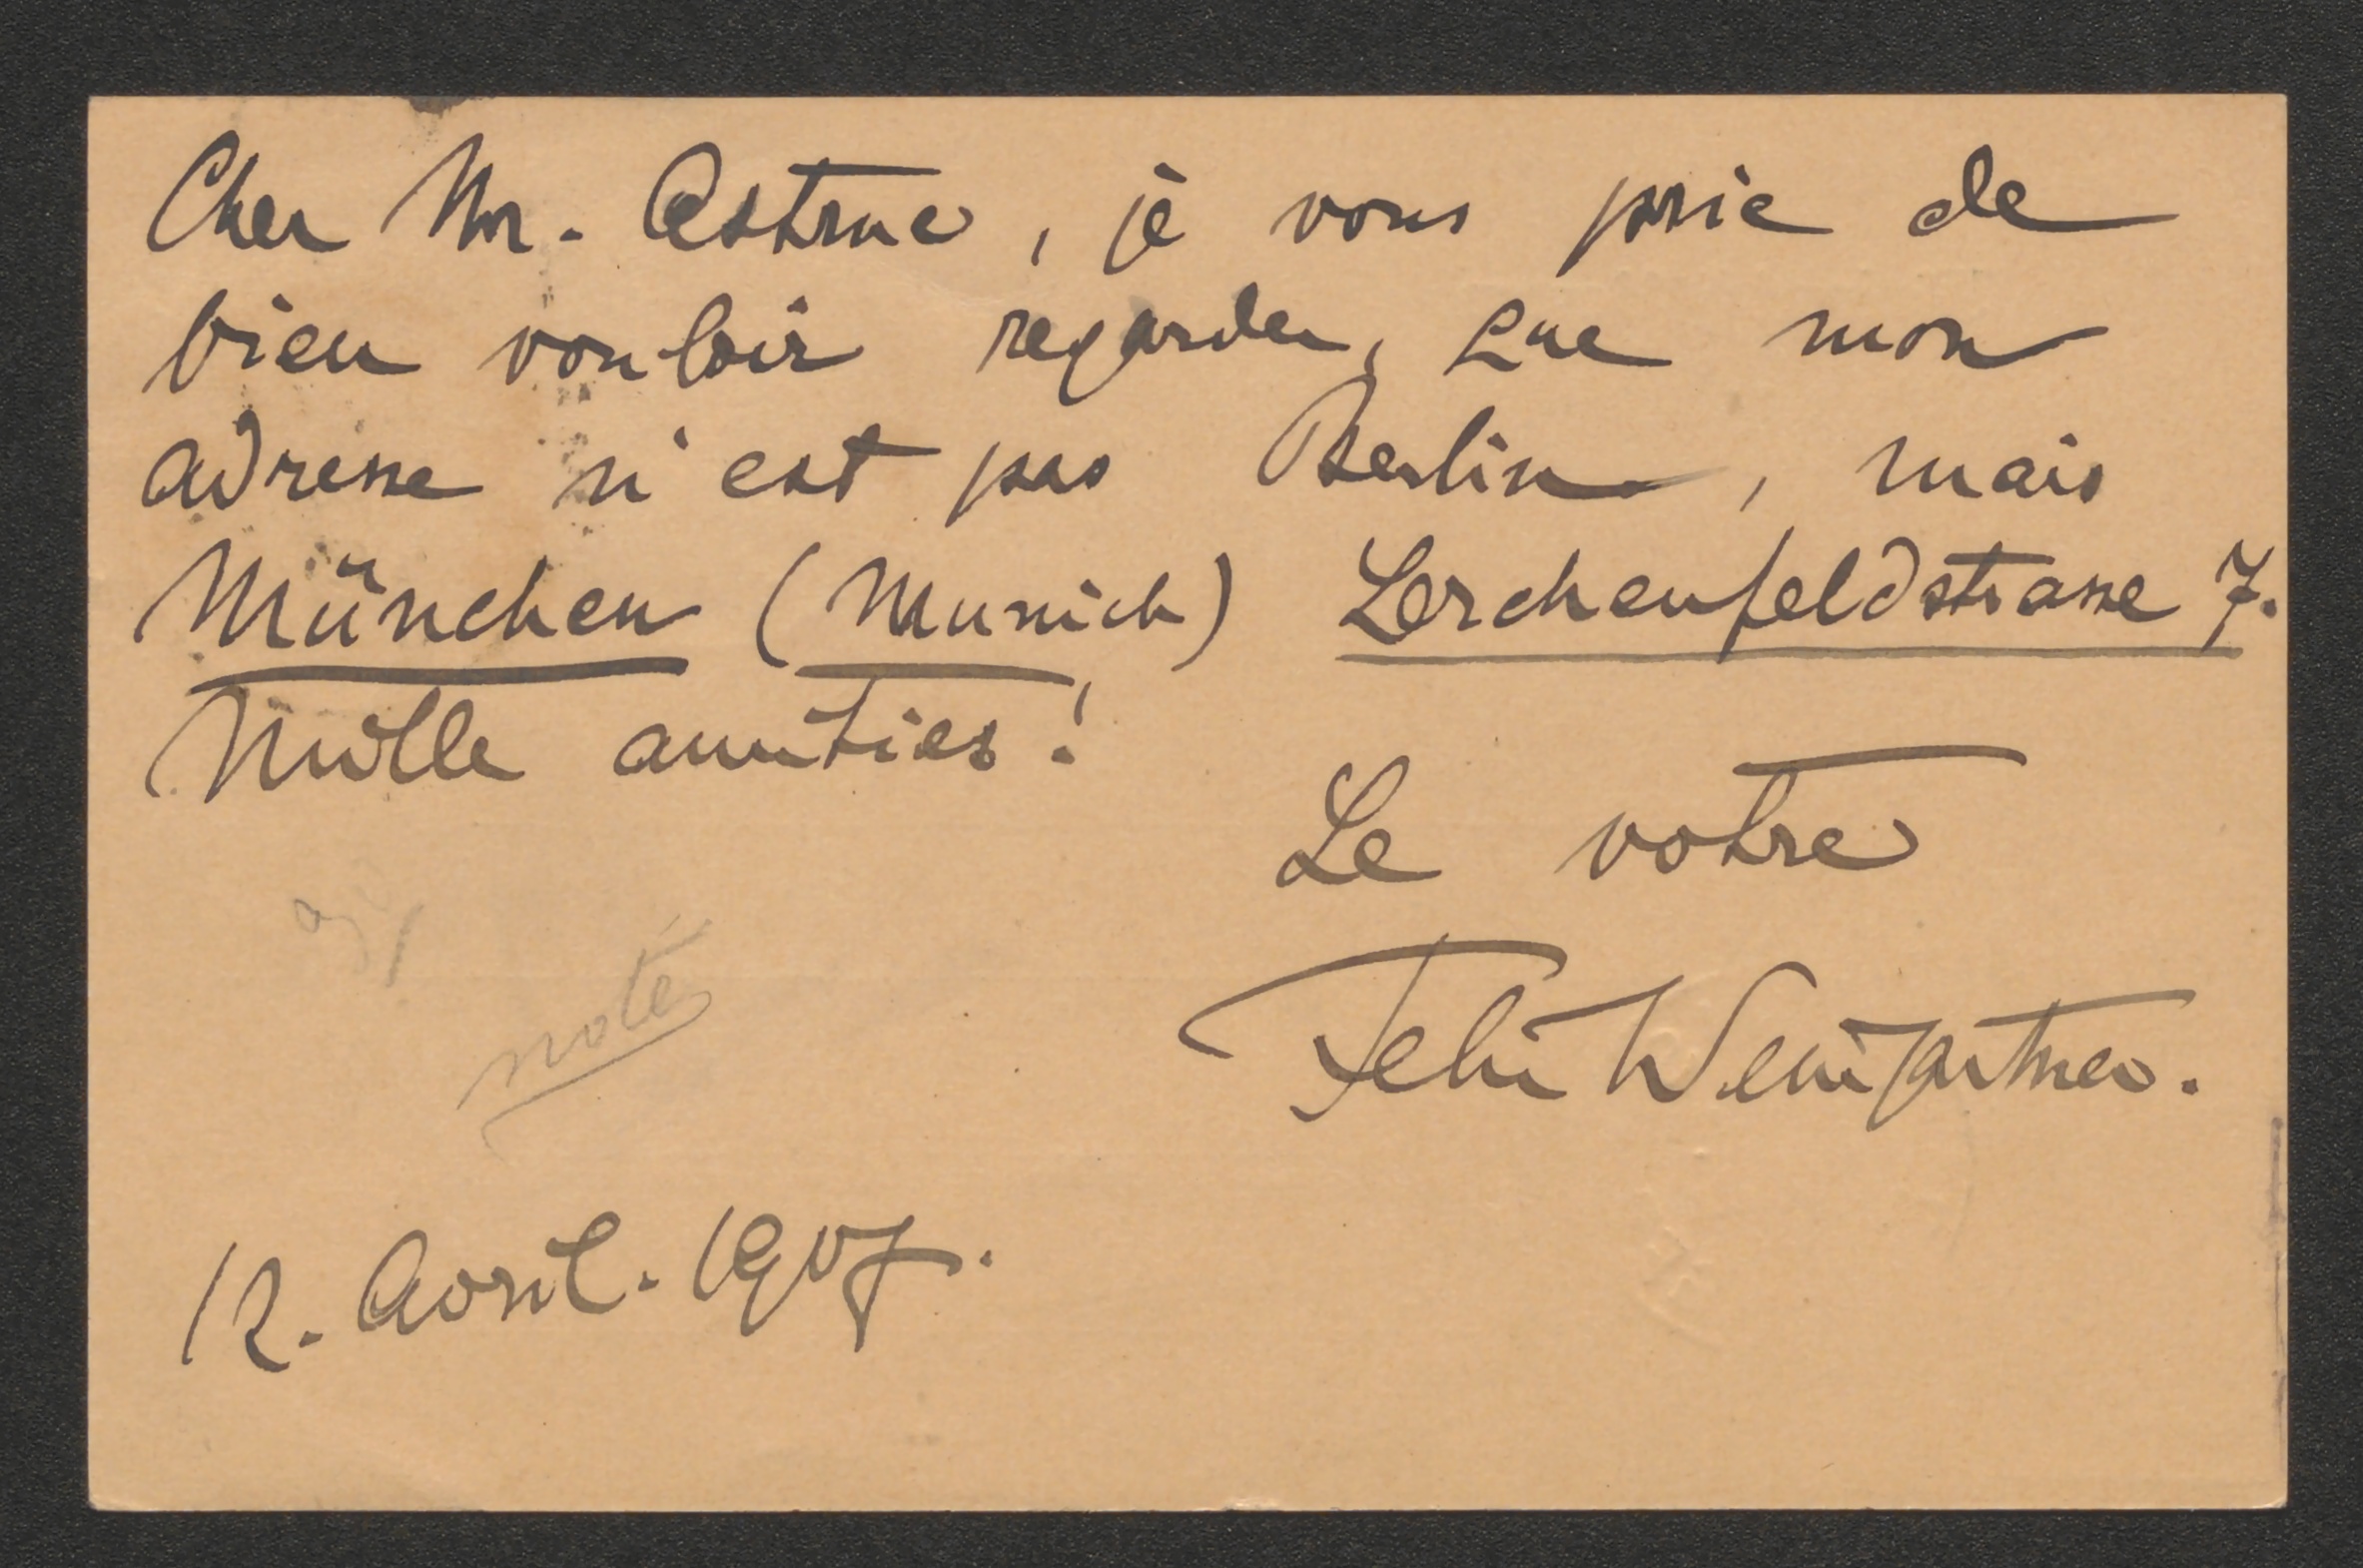 Cher Mr. Astruc, je vous prie de
bien vouloir regarder, que mon
adresse n'est pas Berlin, mais
München (Munich) Lerchenfeldstrasse 7.
Mille amitiés!
Le votre
Felix Weingartner.
noté
12. Avril. 1907.